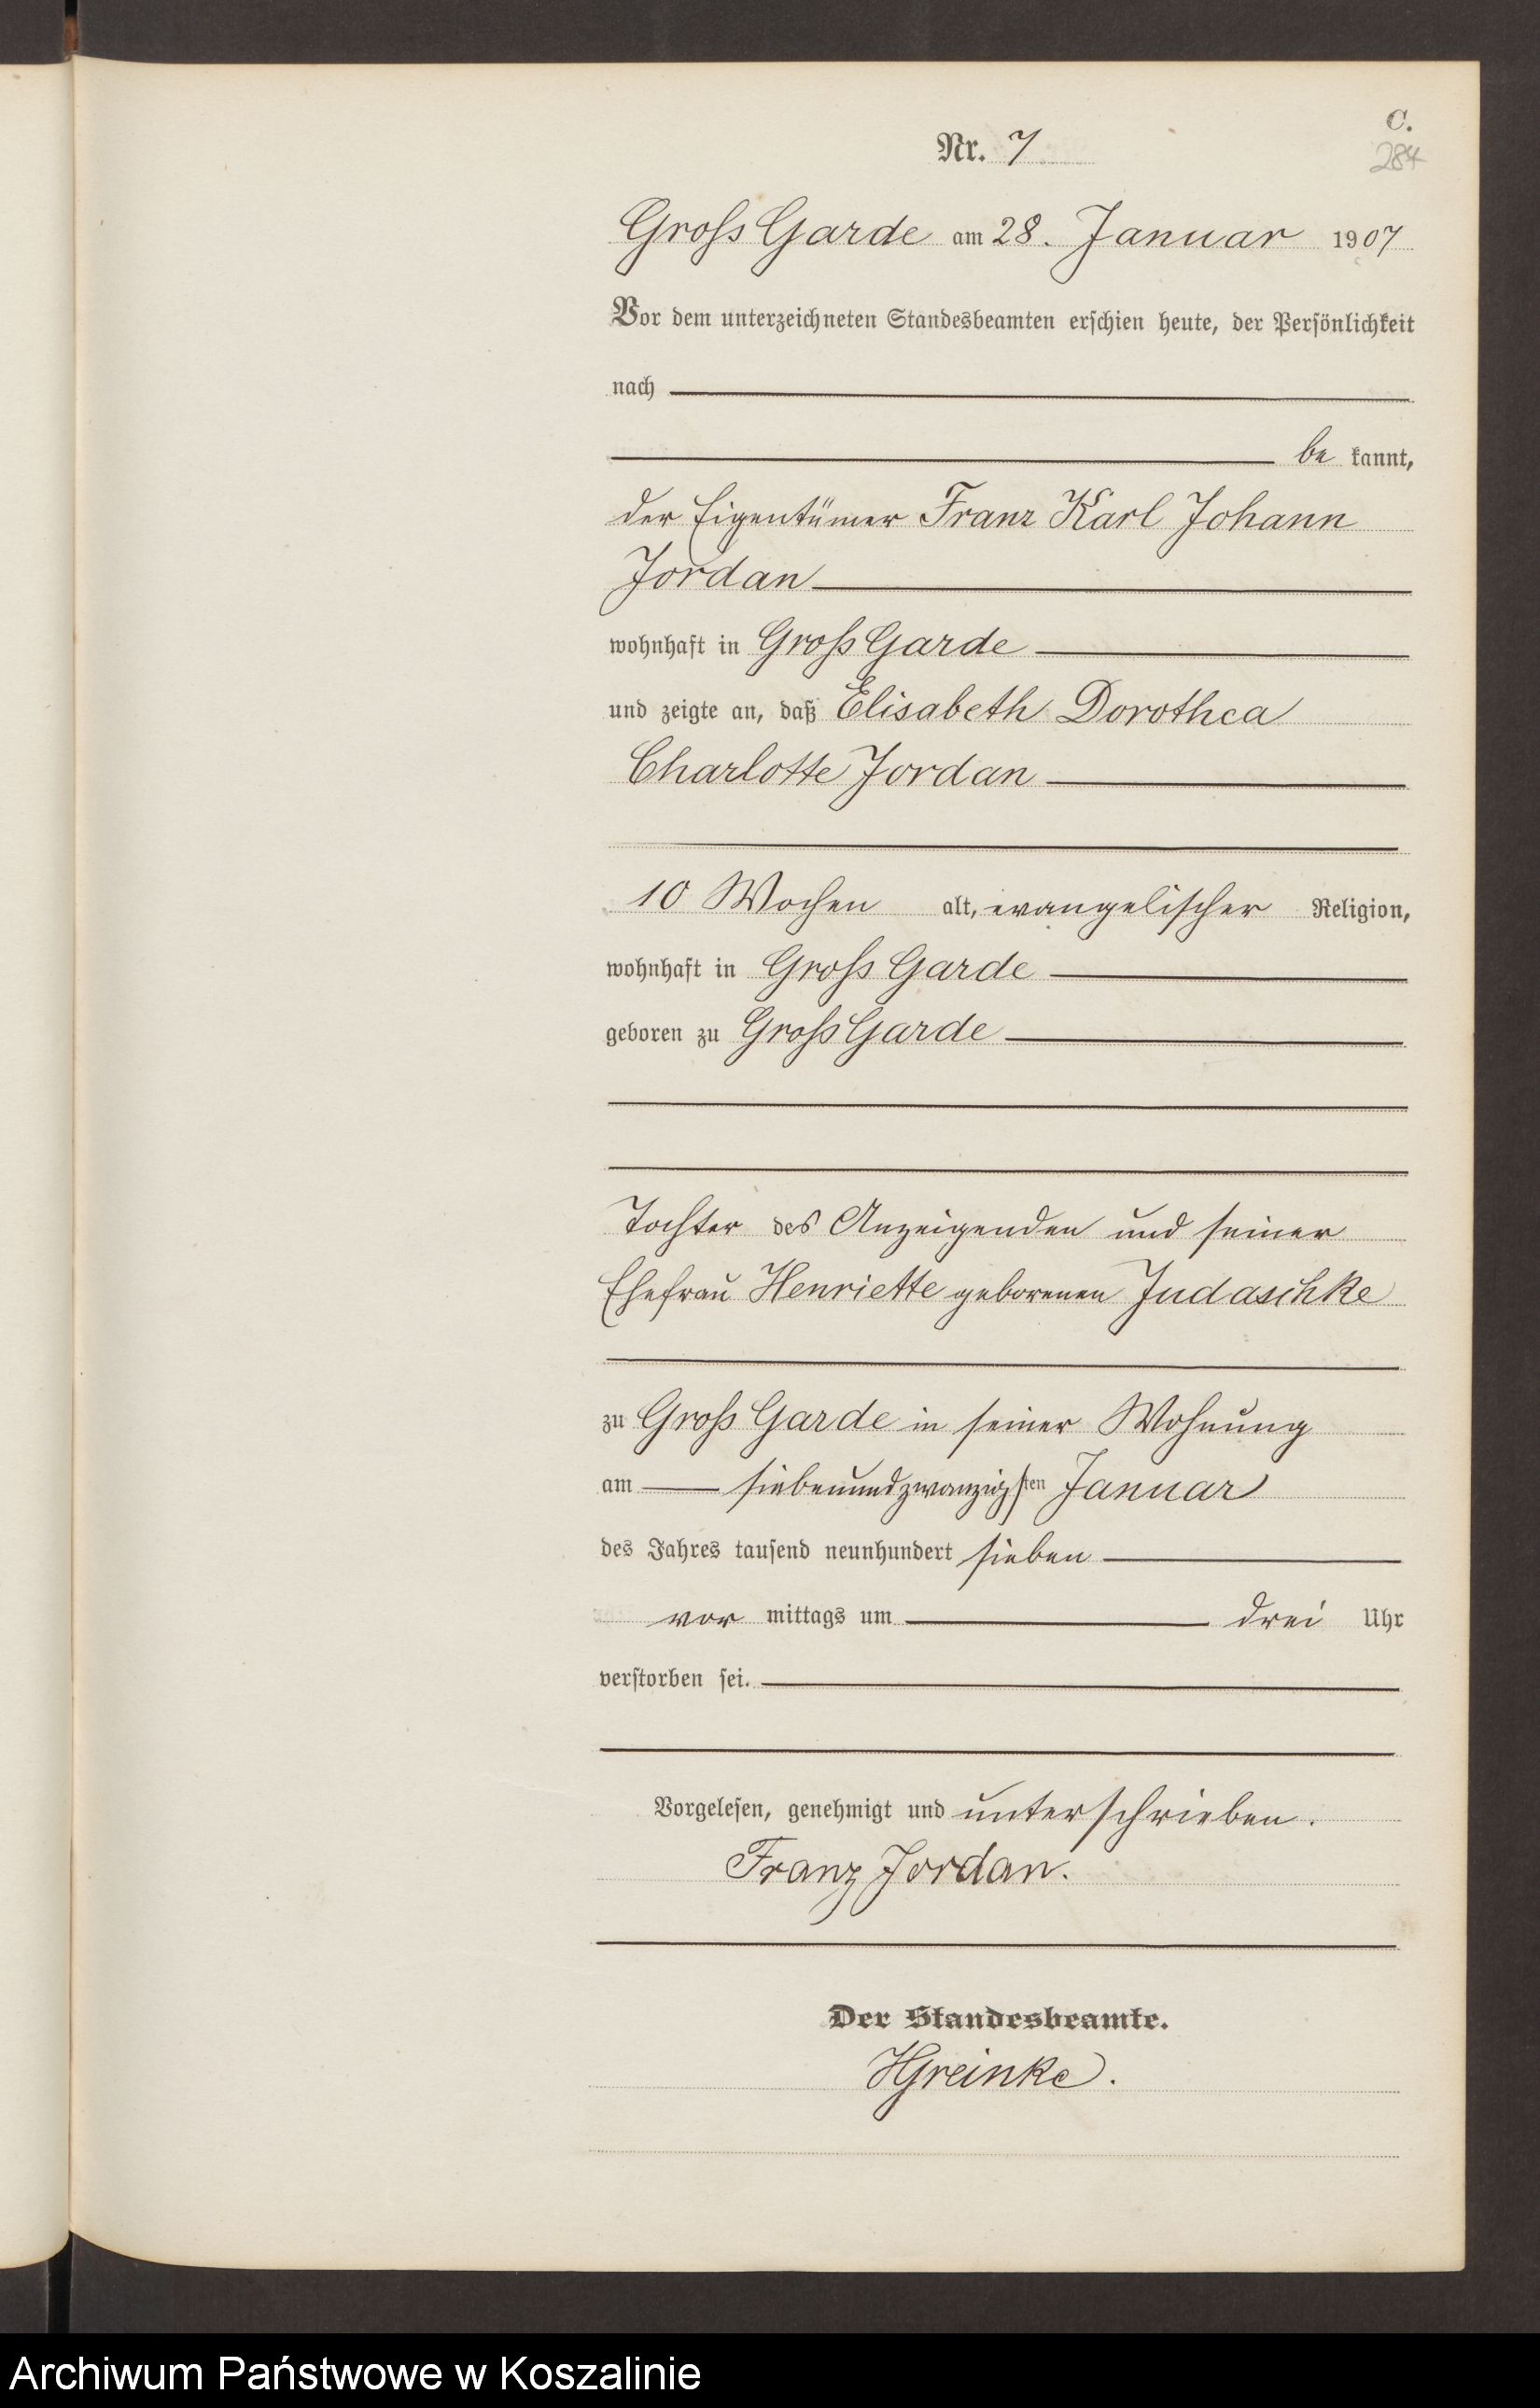 C.
Nr. 7
284
Gross Garde am 28. Januar 1907
Vor dem unterzeichneten Standesbeamten erschien heute, der Persönlichkeit
nach
be kannt,
der Eigentümer Franz Karl Johann
Jordan
wohnhaft in Gross Garde
und zeigte an, daß Elisabeth Dorothea
Charlotte Jordan
10 Wochen alt, evangelischer Religion,
wohnhaft in Gross Garde
geboren zu Gross Garde
Tochter des Anzeigenden und seiner
Ehefrau Henriette geborenen Judaschke
zu Gross Garde in seiner Wohnung
am siebenundzwanzigsten Januar
des Jahres tausend neunhundert sieben
vor mittags um drei Uhr
verstorben sei.
Vorgelesen, genehmigt und unterschrieben.
Franz Jordan.
Der Standesbeamte.
HGreinke.
Archiwum Państwowe w Koszalinie